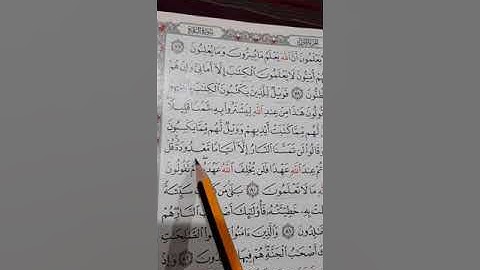 سورة البقرة الجزء الأول
يَعْلَمُونَ أَنَّ ٱللَّهَ يَعْلَمُ مَا يُسِرُّونَ وَمَا يُعْلِنُونَ ٧٧
هُمْ أُمِّيُّونَ لَا يَعْلَمُونَ ٱلْكِتَٰبَ إِلَّآ أَمَانِىَّ وَإِنْ هُمْ
ظُنُّونَ ٧٨ فَوَيْلٌ لِّلَّذِينَ يَكْتُبُونَ ٱلْكِتَٰبَ بِأَيْدِيهِمْ
قُولُونَ هَٰذَا مِنْ عِندِ ٱللَّهِ لِيَشْتَرُوا۟ بِهِۦ ثَمَنًا قَلِيلًا
لَهُم مِّمَّا كَتَبَتْ أَيْدِيهِمْ وَوَيْلٌ لَّهُم مِّمَّا يَكْسِبُونَ
وَقَالُوا۟ لَن تَمَسَّنَا ٱلنَّارُ إِلَّآ أَيَّامًا مَّعْدُودَةً قُلْ
تُمْ عِندَ ٱللَّهِ عَهْدًا فَلَن يُخْلِفَ ٱللَّهُ عَهْدَهُۥٓ أَمْ تَقُولُونَ
مَا لَا تَعْلَمُونَ ٨٠ بَلَىٰ مَن كَسَبَ سَيِّئَةً
تْ بِهِۦ خَطِيٓـَٔتُهُۥ فَأُو۟لَٰٓئِكَ أَصْحَٰبُ ٱلنَّارِ هُمْ
لِدُونَ ٨١ وَٱلَّذِينَ ءَامَنُوا۟ وَعَمِلُوا۟ ٱلصَّٰلِحَٰتِ
ئِكَ أَصْحَٰبُ ٱلْجَنَّةِ هُمْ فِيهَا خَٰلِدُونَ ٨٢ وَإِذْ